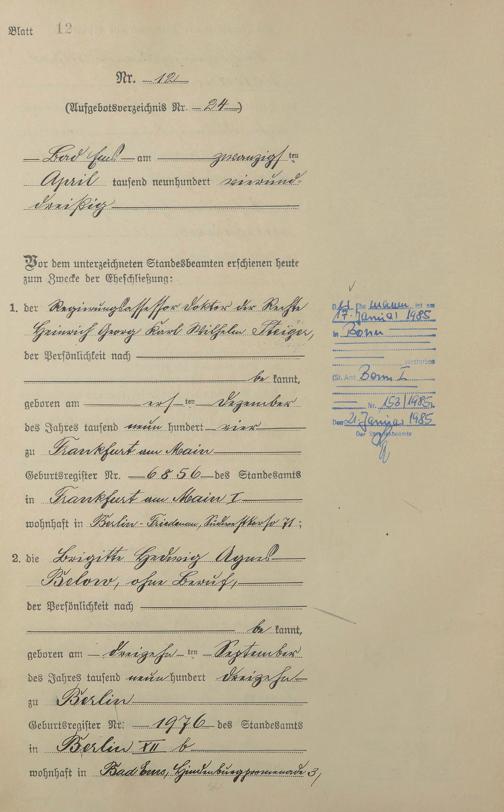 Blatt 12
Nr. 12
(Aufgebotsverzeichnis Nr. 24)
Bad Ems am zwanzigsten
April tausend neunhundert vierund-
dreißig
Vor dem unterzeichneten Standesbeamten erschienen heute
zum Zwecke der Eheschließung:
1. der Regierungsassessor Doktor der Rechte
Heinrich Georg Karl Wilhelm Steiger,
der Persönlichkeit nach
be kannt,
geboren am ersten Dezember
des Jahres tausend neun hundert vier
zu Frankfurt am Main
Geburtsregister Nr. 6856 des Standesamts
in Frankfurt am Main I
wohnhaft in Berlin-Friedenau, Südwestkorso 71;
2. die Brigitte Hedwig Agnes
Below, ohne Beruf,
der Persönlichkeit nach
be kannt,
geboren am dreizehnten September
des Jahres tausend neun hundert dreizehn
zu Berlin
Geburtsregister Nr. 1976 des Standesamts
in Berlin XII b
wohnhaft in Bad Ems, Hindenburgpromenade 3,
Ehemann ist am
17. Januar 1985
in Bonn
verstorben
(St. Amt Bonn I
Nr. 153/1985).
Den 21. Januar 1985
Der Standesbeamte